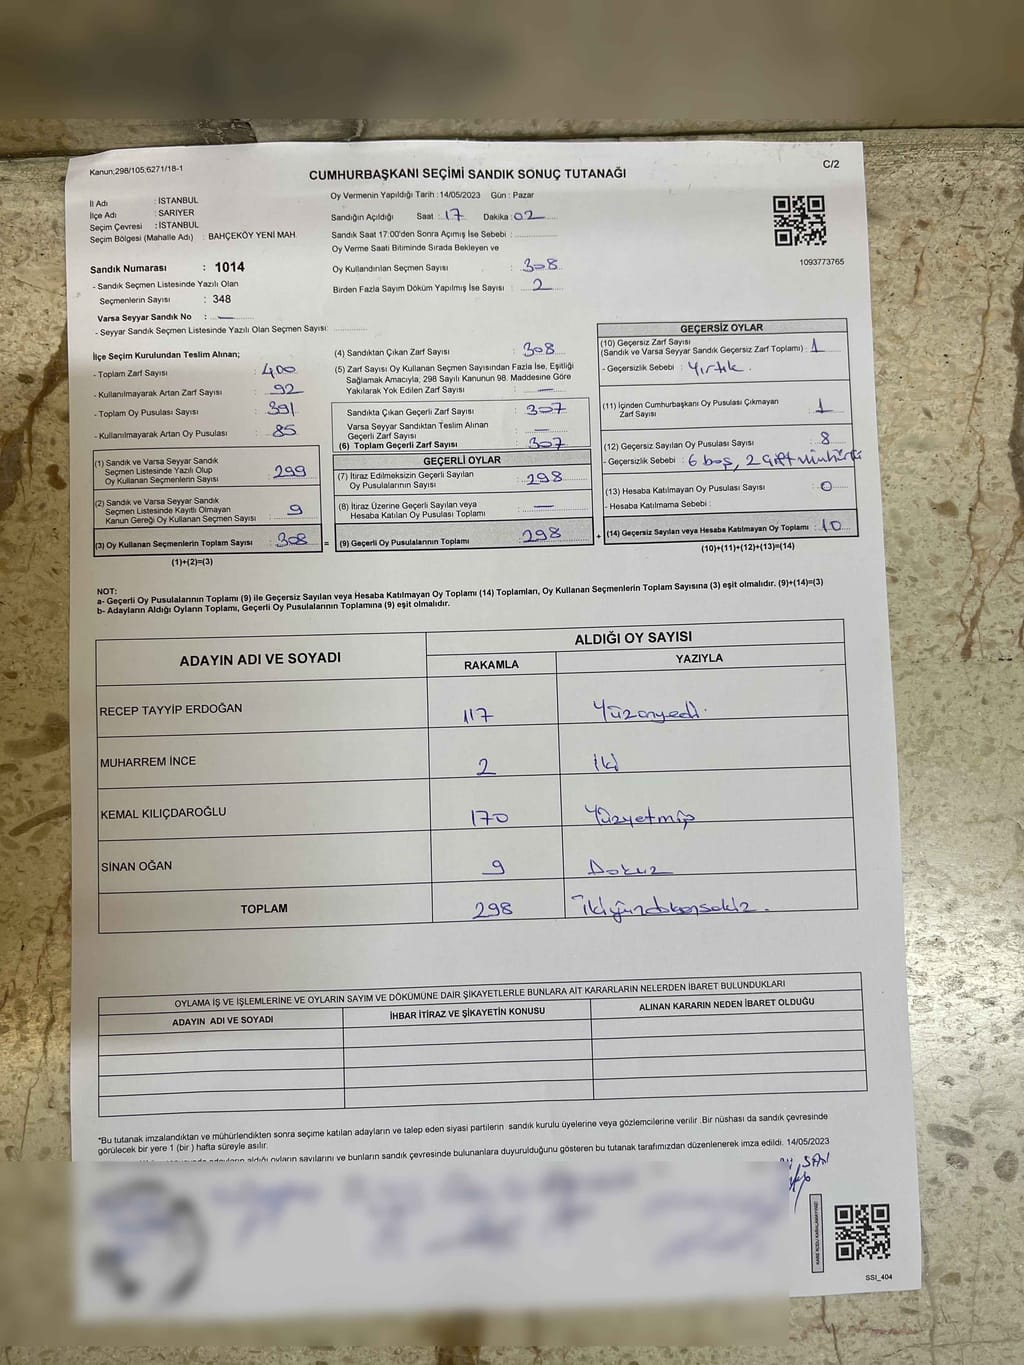 Kanun;298/105;6271/18-1
C/2
CUMHURBAŞKANI SEÇİMİ SANDIK SONUÇ TUTANAĞI
İl Adı : İSTANBUL
İlçe Adı : SARIYER
Seçim Çevresi : İSTANBUL
Seçim Bölgesi (Mahalle Adı) : BAHÇEKÖY YENİ MAH.
Oy Vermenin Yapıldığı Tarih : 14/05/2023 Gün : Pazar
Sandığın Açıldığı Saat : 17 Dakika : 02
Sandık Saat 17:00'den Sonra Açımış İse Sebebi :
Oy Verme Saati Bitiminde Sırada Bekleyen ve
Oy Kullandırılan Seçmen Sayısı : 308
Birden Fazla Sayım Döküm Yapılmış İse Sayısı : 2
1093773765
Sandık Numarası : 1014
- Sandık Seçmen Listesinde Yazılı Olan
Seçmenlerin Sayısı : 348
Varsa Seyyar Sandık No : —
- Seyyar Sandık Seçmen Listesinde Yazılı Olan Seçmen Sayısı:
İlçe Seçim Kurulundan Teslim Alınan;
- Toplam Zarf Sayısı : 400
- Kullanılmayarak Artan Zarf Sayısı : 92
- Toplam Oy Pusulası Sayısı : 391
- Kullanılmayarak Artan Oy Pusulası : 85
(1) Sandık ve Varsa Seyyar Sandık
Seçmen Listesinde Yazılı Olup
Oy Kullanan Seçmenlerin Sayısı : 299
(2) Sandık ve Varsa Seyyar Sandık
Seçmen Listesinde Kayıtlı Olmayan
Kanun Gereği Oy Kullanan Seçmen Sayısı : 9
(3) Oy Kullanan Seçmenlerin Toplam Sayısı : 308
(1)+(2)=(3)
(4) Sandıktan Çıkan Zarf Sayısı : 308
(5) Zarf Sayısı Oy Kullanan Seçmen Sayısından Fazla İse, Eşitliği
Sağlamak Amacıyla, 298 Sayılı Kanunun 98. Maddesine Göre
Yakılarak Yok Edilen Zarf Sayısı : —
Sandıkta Çıkan Geçerli Zarf Sayısı : 307
Varsa Seyyar Sandıktan Teslim Alınan
Geçerli Zarf Sayısı : —
(6) Toplam Geçerli Zarf Sayısı : 307
GEÇERLİ OYLAR
(7) İtiraz Edilmeksizin Geçerli Sayılan
Oy Pusulalarının Sayısı : 298
(8) İtiraz Üzerine Geçerli Sayılan veya
Hesaba Katılan Oy Pusulası Toplamı : —
= (9) Geçerli Oy Pusulalarının Toplamı : 298
GEÇERSİZ OYLAR
(10) Geçersiz Zarf Sayısı
(Sandık ve Varsa Seyyar Sandık Geçersiz Zarf Toplamı) : 1
- Geçersizlik Sebebi : Yırtık.
(11) İçinden Cumhurbaşkanı Oy Pusulası Çıkmayan
Zarf Sayısı : 1
(12) Geçersiz Sayılan Oy Pusulası Sayısı : 8
- Geçersizlik Sebebi : 6 boş, 2 çift mühürlü
(13) Hesaba Katılmayan Oy Pusulası Sayısı : 0
- Hesaba Katılmama Sebebi :
+ (14) Geçersiz Sayılan veya Hesaba Katılmayan Oy Toplamı : 10
(10)+(11)+(12)+(13)=(14)
NOT:
a- Geçerli Oy Pusulalarının Toplamı (9) ile Geçersiz Sayılan veya Hesaba Katılmayan Oy Toplamı (14) Toplamları, Oy Kullanan Seçmenlerin Toplam Sayısına (3) eşit olmalıdır. (9)+(14)=(3)
b- Adayların Aldığı Oyların Toplamı, Geçerli Oy Pusulalarının Toplamına (9) eşit olmalıdır.
ADAYIN ADI VE SOYADI
ALDIĞI OY SAYISI
RAKAMLA YAZIYLA
RECEP TAYYİP ERDOĞAN 117 Yüzonyedi.
MUHARREM İNCE 2 İki
KEMAL KILIÇDAROĞLU 170 Yüzyetmiş
SİNAN OĞAN 9 Dokuz
TOPLAM 298 İkiyüzdoksansekiz.
OYLAMA İŞ VE İŞLEMLERİNE VE OYLARIN SAYIM VE DÖKÜMÜNE DAİR ŞİKAYETLERLE BUNLARA AİT KARARLARIN NELERDEN İBARET BULUNDUKLARI
ADAYIN ADI VE SOYADI İHBAR İTİRAZ VE ŞİKAYETİN KONUSU ALINAN KARARIN NEDEN İBARET OLDUĞU
*Bu tutanak imzalandıktan ve mühürlendikten sonra seçime katılan adayların ve talep eden siyasi partilerin sandık kurulu üyelerine veya gözlemcilerine verilir .Bir nüshası da sandık çevresinde
görülecek bir yere 1 (bir ) hafta süreyle asılır.
adayların aldığı oyların sayılarını ve bunların sandık çevresinde bulunanlara duyurulduğunu gösteren bu tutanak tarafımızdan düzenlenerek imza edildi. 14/05/2023
SSI_404